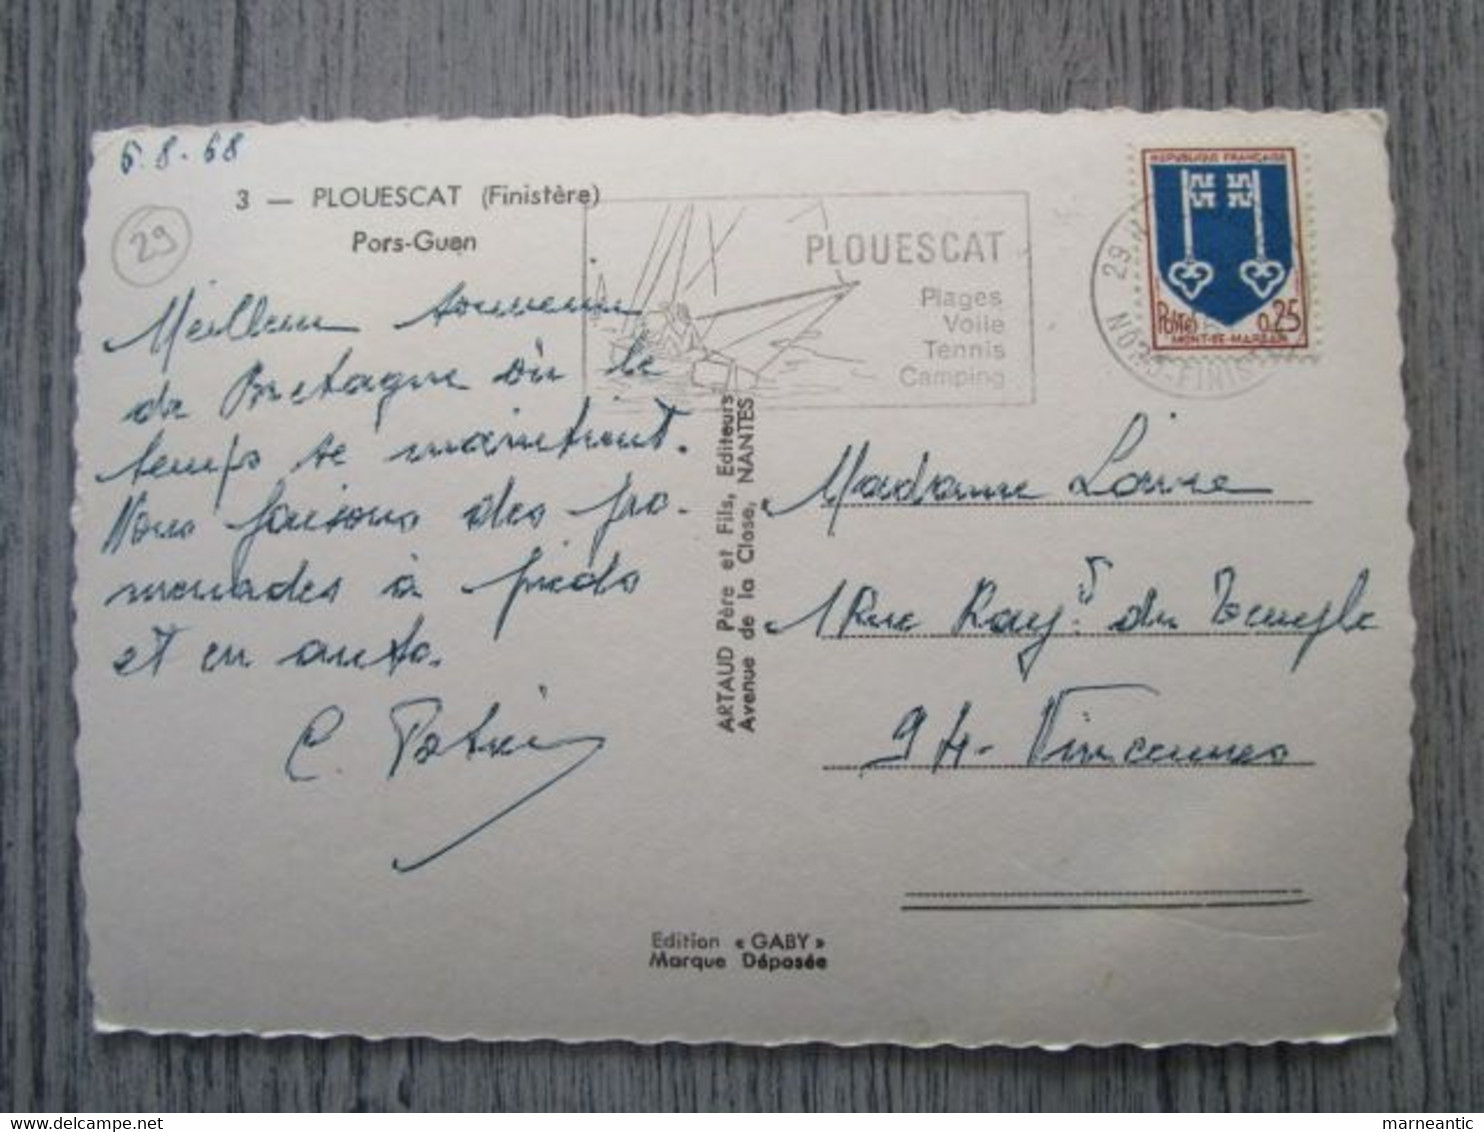 6.8.68
3 — PLOUESCAT (Finistère)
Pors-Guen
29
Meilleur souvenir
de Bretagne où le
temps se maintient.
Nous faisons des pro-
menades à pieds
et en auto.
C.
PLOUESCAT
Plages
Voile
Tennis
Camping
29
NORD-FINISTERE
REPUBLIQUE FRANÇAISE
Postes 0,25
MONT-DE-MARSAN
ARTAUD Père et Fils, Editeurs
Avenue de la Close, NANTES
Madame Louise
1 Rue Rayd du Temple
94-Vincennes
Edition « GABY »
Marque Déposée
marneantic